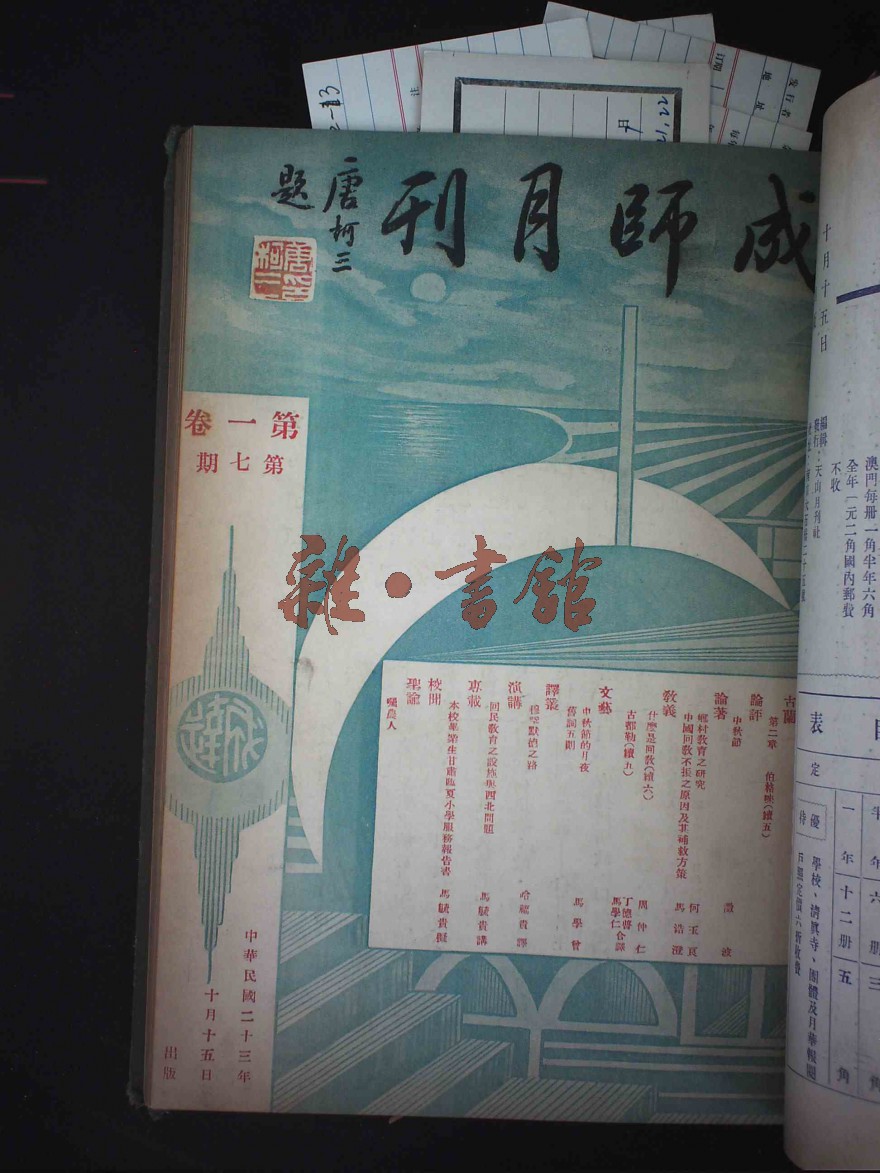 成師月刊
唐柯三
題
唐柯三
第一卷
第七期
成達
中華民國二十三年
十月十五日
出版
雜·書館
古蘭
第二章
論評
中秋節
論著
鄉村教育之研究
何玉良
中國回教不振之原因及其補救方策
馬浩澄
教義
什麼是回教(續六)
周仲仁
古都勒(續五)
馬學仁
合譯
文藝
中秋節的月夜
馬學曾
舊詞五闋
譯叢
穆罕默德之路
演講
專載
回民教育之設施與西北問題
馬毓貴講
校聞
本校畢業生甘肅臨夏小學服務報告書
馬毓貴擬
聖諭
十月十五日
編輯
發行:天山月刊社
不收
全年一元二角國內郵費
澳門每冊一角半年六角
表
定
優待
學校、清真寺、團體及月華報閱
戶照定價六折收費
一年十二冊五角
半年六冊三角